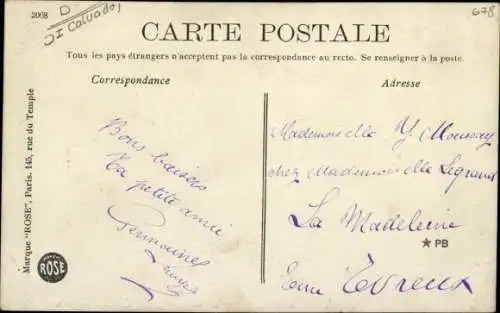 2008
D
Calvados
678
CARTE POSTALE
Tous les pays étrangers n'acceptent pas la correspondance au recto. Se renseigner à la poste.
Correspondance
Adresse
Bons baisers
Ta petite amie
Mademoiselle Y
chez Mademoiselle Legrand
La Madeleine
Evreux
★ PB
Marque "ROSE", Paris. 145, rue du Temple
ROSE